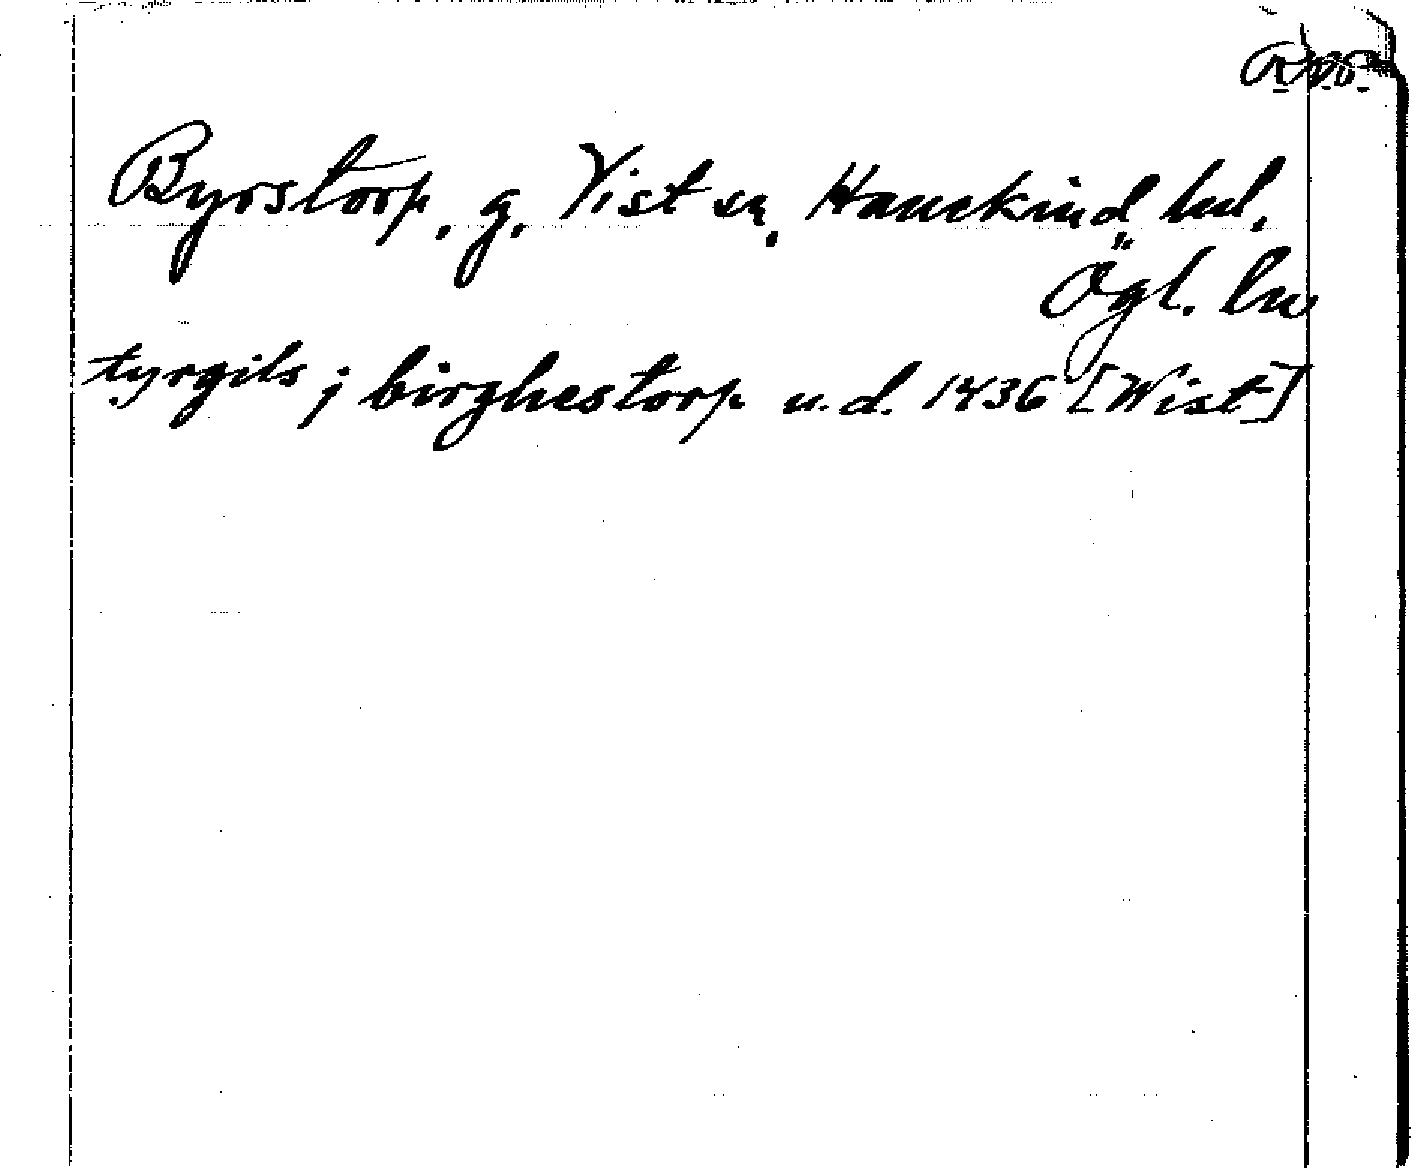 Byrstorp, g, Vist sn, Hanekind hd,
Ögl. ln
tyrgils j birghestorp u.d. 1436 [Wist]